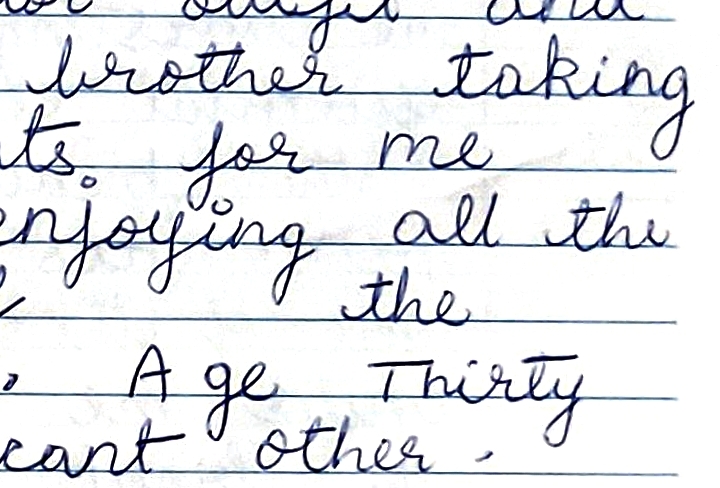 and
brother taking
for me
enjoying all the
the
Age Thirty
other.